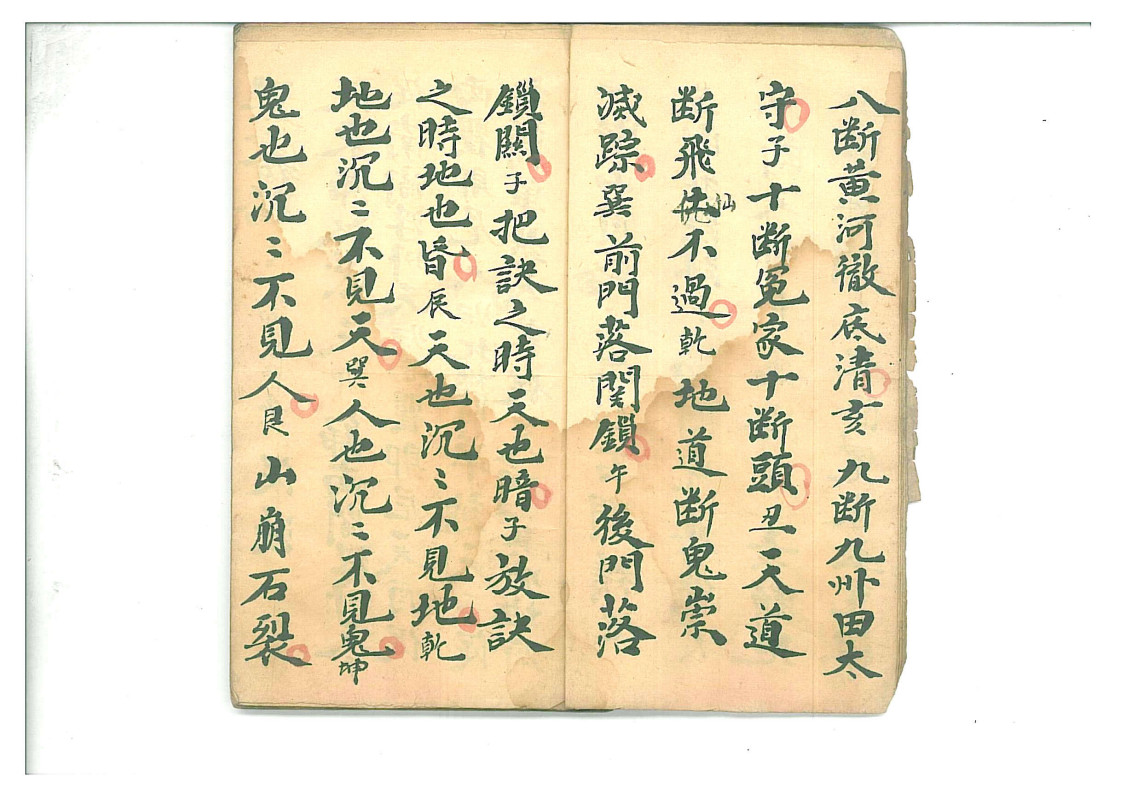 八断黄河徹底清亥九断九卅田太
守子十断冤家十断頭丑天道
断飛仙不過乾地道断鬼崇
滅踪巽前門落関鎖午後門落
鎖関子把訣之時天也暗子放訣
之時地也昏辰天也沉〻不見地乾
地也沉〻不見天巽人也沉〻不見鬼坤
鬼也沉〻不見人艮山崩石裂